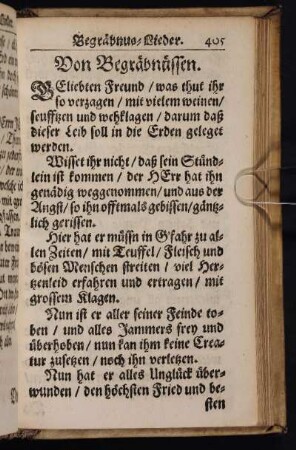 Begräbnus-Lieder. 405
Von Begräbnüssen.
GEliebten Freund / was thut ihr
so verzagen / mit vielem weinen /
seufftzen und wehklagen / darum daß
dieser Leib soll in die Erden geleget
werden.
Wisset ihr nicht / daß sein Stünd-
lein ist kommen / der HErr hat ihn
genädig weggenommen / und aus der
Angst / so ihn offtmals gebissen / gäntz-
lich gerissen.
Hier hat er müssn in G'fahr zu al-
len Zeiten / mit Teuffel / Fleisch und
bösen Menschen streiten / viel Her-
tzenleid erfahren und ertragen / mit
grossem Klagen.
Nun ist er aller seiner Feinde to-
ben / und alles Jammers frey und
überhoben / nun kan ihm keine Crea-
tur zusetzen / noch ihn verletzen.
Nun hat er alles Unglück über-
wunden / den höchsten Fried und be-
sten